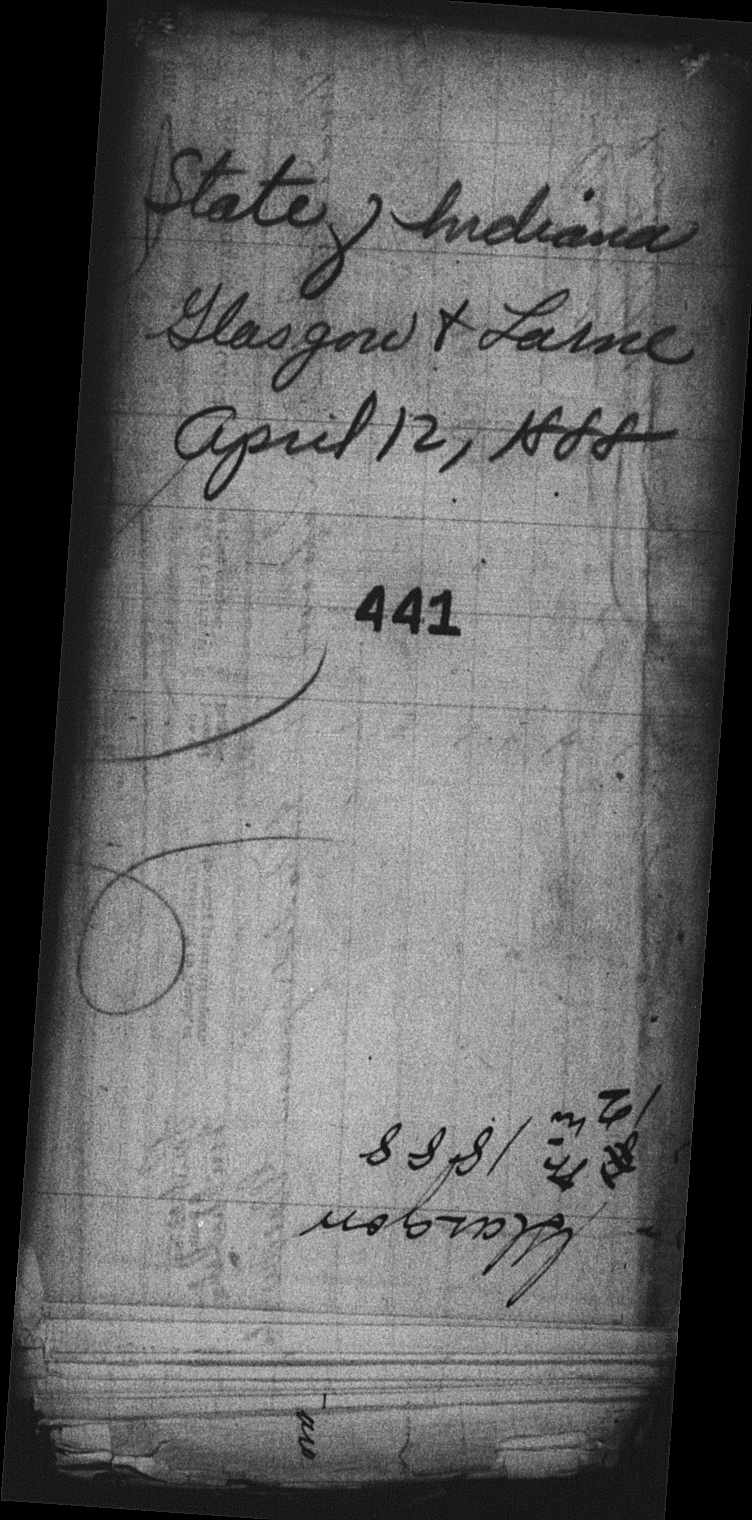 State of Indiana
Glasgow & Larne
April 12, 1888
441
1888
Glasgow